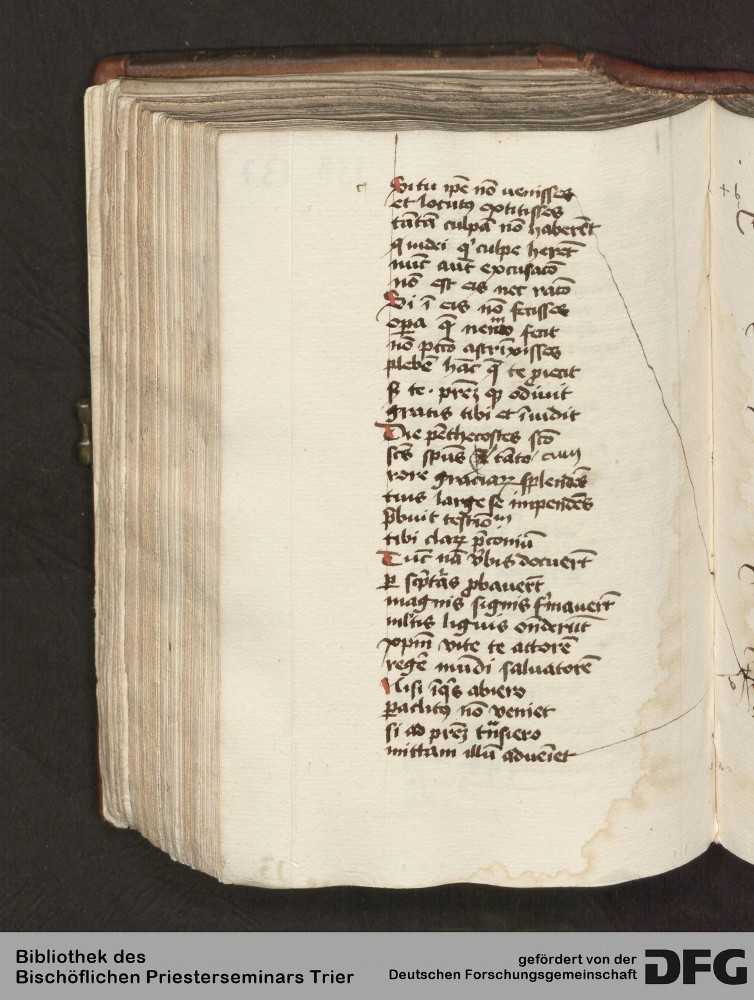 Si tu ip̄e nō venisses
et locutꝯ extitisses
tātā culpā nō haberēt
q̄ iudei qͥ culpe herēt
nūc aūt excusacō
nō est eis nec racō
Si ī eis nō fecisses
oꝑa q̄ nemo fecit
nō pctō astrīxisses
plebē hāc q̄ te ꝓiecit
sꝫ te prēꝫ qꝫ odiuit
gratis tibi et īuidit
Die pēthecostes scō
scs spūs tāto cum
rore graciaꝝ splendēs
tuus large se impendēs
p̄buit testīom
tibi claꝝ p̄coniū
Tūc nā v̓bis docuerūt
ꝑ sc͛pt͛as ꝓbauerūt
magnis signis f͛mauerūt
ml̄tis liguis onderūt
xpm̄ vite te actorē
regē mūdi saluatorē
Nisi īqͥs abiero
ꝑaclitꝯ nō veniet
si ad prēꝫ trāsiero
mittam illū adueīet
Bibliothek des
Bischöflichen Priesterseminars Trier
gefördert von der
Deutschen Forschungsgemeinschaft
DFG